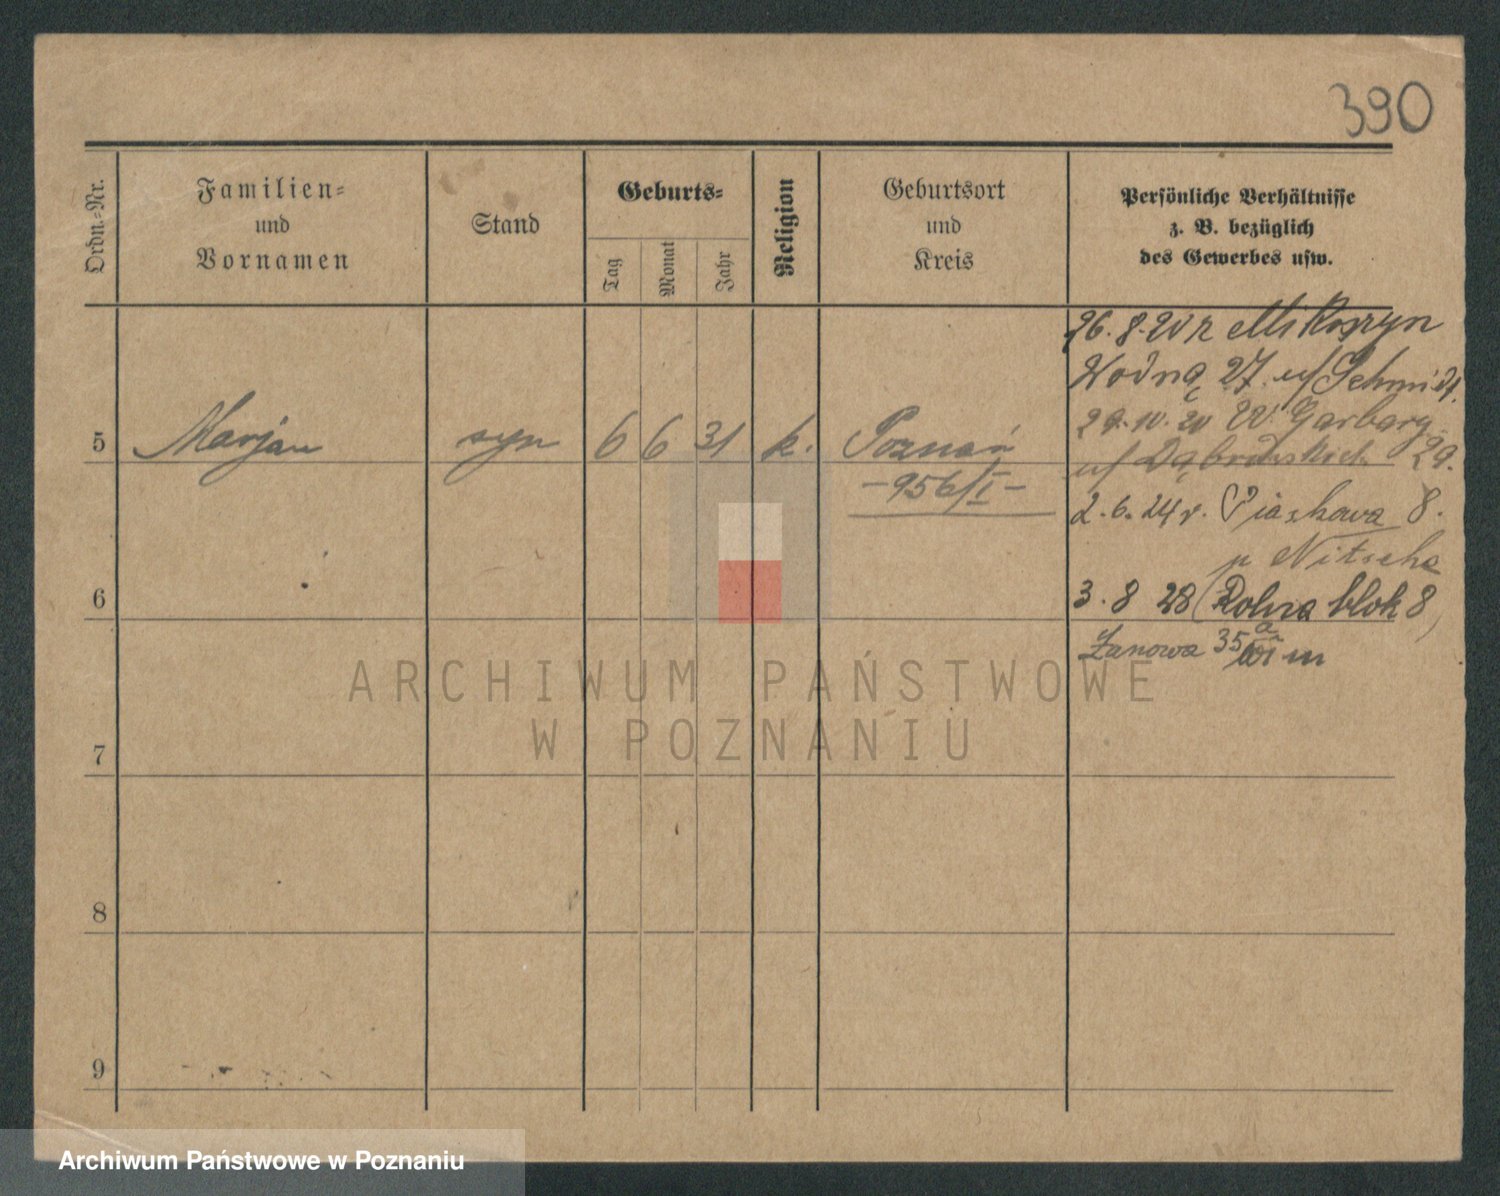 390
Ordn.-Nr.
Familien-
und
Vornamen
Stand
Geburts-
Tag
Monat
Jahr
Religion
Geburtsort
und
Kreis
Persönliche Verhältnisse
z. B. bezüglich
des Gewerbes usw.
26.8.20 r
Wodna 27. Schmidt.
29.10.20 W. Garbary
29.
2.6.24 r. Piaskowa 8.
p Nitsche
3.8 28 (Rolna blok 8)
Łanowa 35a
5 Marjan syn 6 6 31 k. Poznań
-956/I-
6
7
8
9
ARCHIWUM PAŃSTWOWE
W POZNANIU
Archiwum Państwowe w Poznaniu